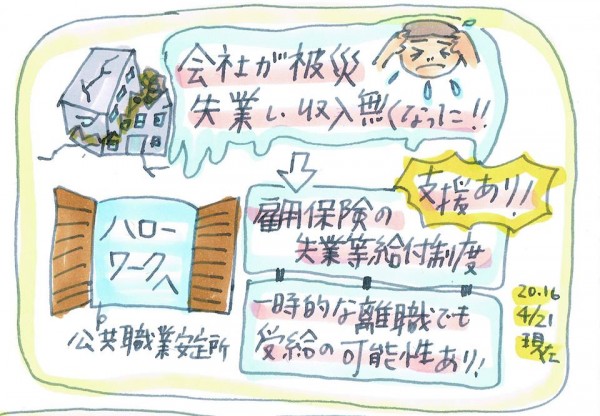 会社が被災
失業し収入無くなった!!
支援あり!
雇用保険の
失業等給付制度
ハロー
ワークへ
公共職業安定所
一時的な離職でも
受給の可能性あり!
20.16
4/21
現在